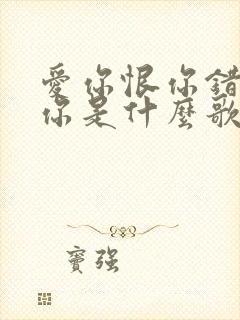 愛你恨你錯
你是什麼歌
竇強